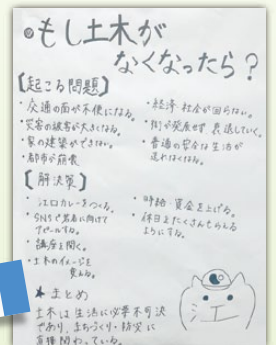 もし土木が
なくなったら？
【起こる問題】
・交通の面が不便になる。
・災害の被害が大きくなる。
・家の建築ができない。
・都市が崩壊
・経済・社会が回らない。
・街が発展せず衰退していく。
・普通の安全な生活が
送れなくなる。
【解決策】
・江口カレーをつくる。
・SNSで若者に向けて
アピールする。
・講座を開く。
・土木のイメージを
変える。
・時給・賃金を上げる。
・休日をたくさんもらえる
ようにする。
★まとめ
土木は生活に必要不可決
であり、まちづくり・防災に
直接関わっている。